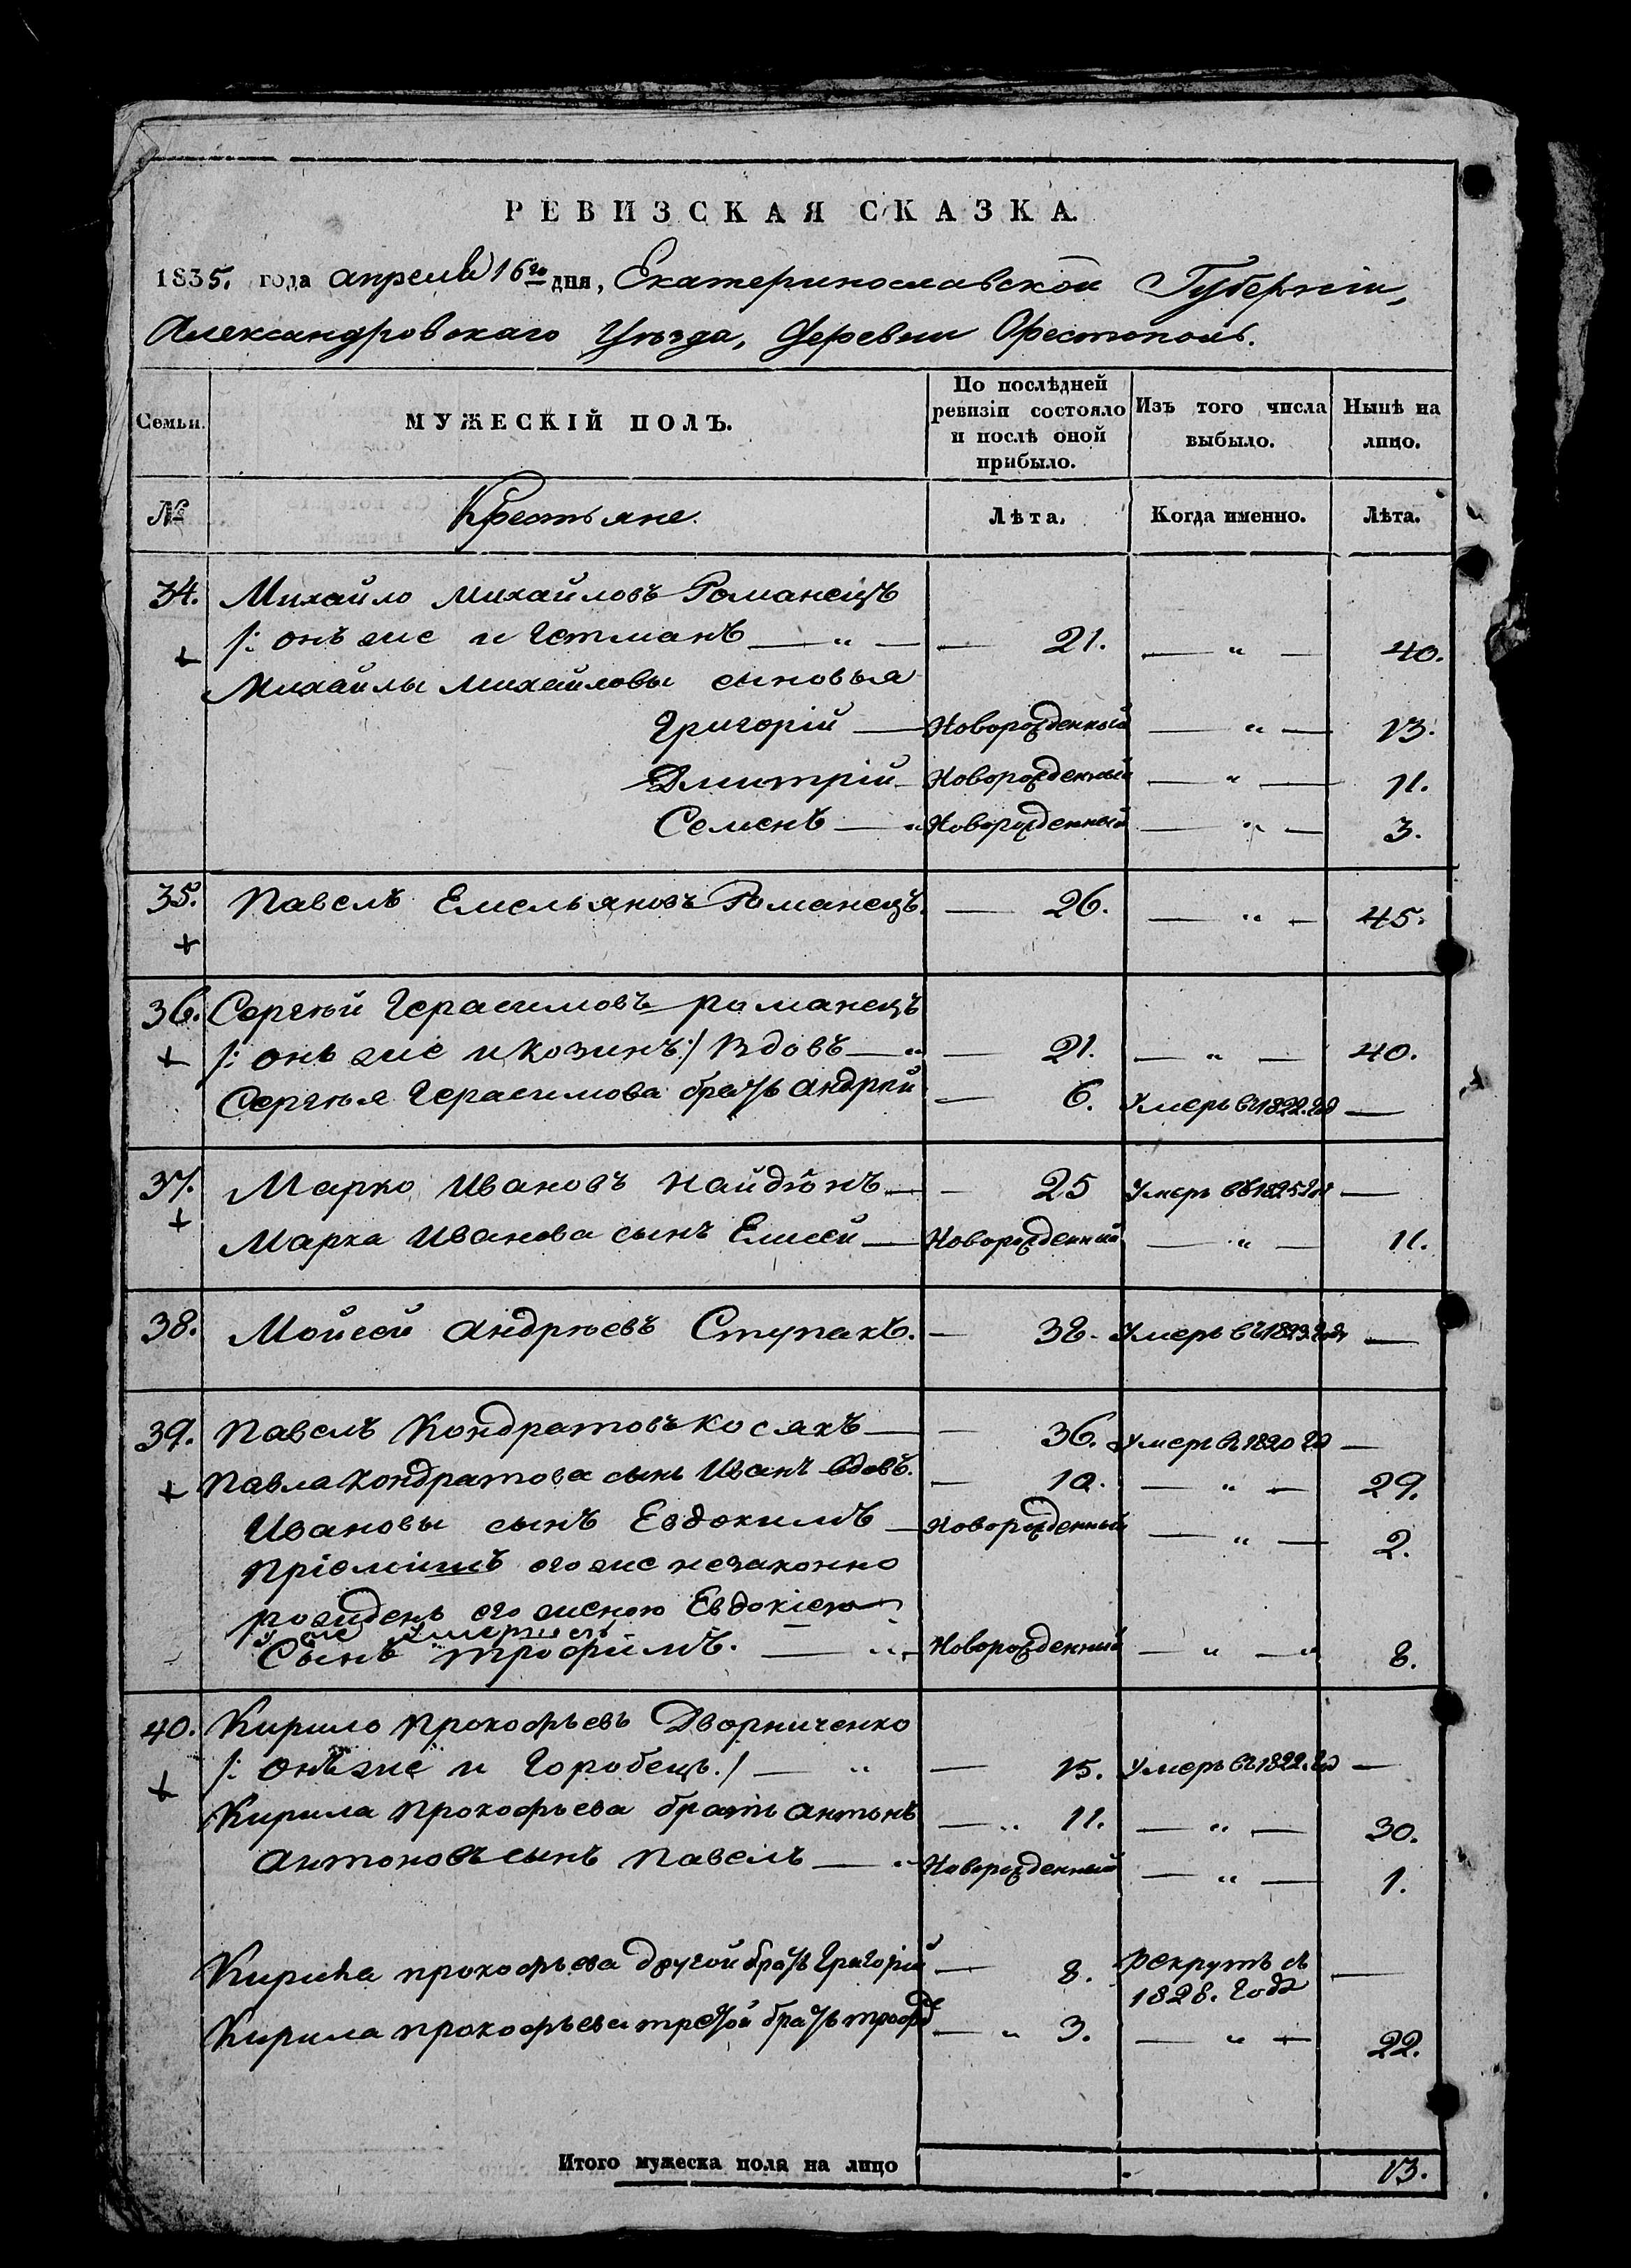 РЕВИЗСКАЯ СКАЗКА.
1835. года апреля 16го дня, Екатеринославской Губерніи,
Александровскаго Уѣзда, Деревни Орестополь.
Семьи.
МУЖЕСКІЙ ПОЛЪ.
По послѣдней ревизіи состояло и послѣ оной прибыло.
Изъ того числа выбыло.
Нынѣ на лицо.
№
Крестьяне.
Лѣта.
Когда именно.
Лѣта.
34. Михайло Михайловъ Романецъ
/: онъ же и Гетманъ — " — — 21. — " — 40.
Михайлы Михайловы сыновья
Григорій — Новорожденный — " — 13.
Дмитрій — Новорожденный — " — 11.
Семенъ — " Новорожденный — " — 3.
35. Павелъ Емельяновъ Романецъ. — 26. — " — 45.
+
36. Сергѣй Герасимовъ Романецъ
+ /: онъ же и Козинъ:/ Вдовъ — " — 21. — " — 40.
Сергѣя Герасимова братъ Андрѣй — 6. Умеръ въ 1822. год —
37. Марко Ивановъ Найдіонъ — — 25 Умеръ въ 1825 год —
+
Марка Иванова сынъ Елисей — Новорожденный — " — 11.
38. Мойсей Андрѣевъ Ступакъ. — 32. Умеръ въ 1823. году —
39. Павелъ Кондратовъ Косякъ — — 36. Умеръ въ 1820 год —
+ Павла Кондратова сынъ Иванъ вдовъ. — 10. — " — 29.
Ивановы сынъ Евдокимъ — Новорожденный — " — 2.
Пріемышъ его же незаконно
рожденъ его женою Евдокіею
у же умершею
Сынъ Трофимъ. — " Новорожденный — " — " 8.
40. Кирило Прокофьевъ Дворниченко
+ /: Онъ же и Горобецъ./ — " — 15. Умеръ въ 1822. год —
Кирила Прокофьева братъ Антонъ — " 11. — " — 30.
Антоновъ сынъ Павелъ — " Новорожденный — " — 1.
Кирила Прокофьева другой братъ Григорій — 8. Рекрутъ съ 1828. года —
Кирила Прокофьева третой братъ — " 3. — " — 22.
Итого мужеска пола на лицо 13.